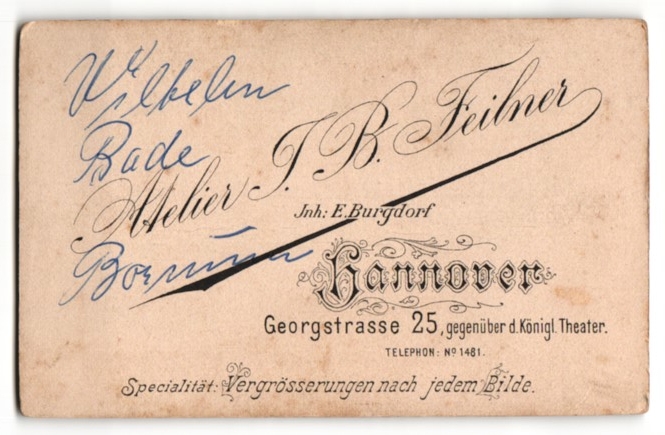 Wilhelm
Bade
Atelier J. B. Feilner
Jnh: E. Burgdorf
Hannover
Georgstrasse 25, gegenüber d. Königl. Theater.
TELEPHON: No 1481.
Specialität: Vergrösserungen nach jedem Bilde.